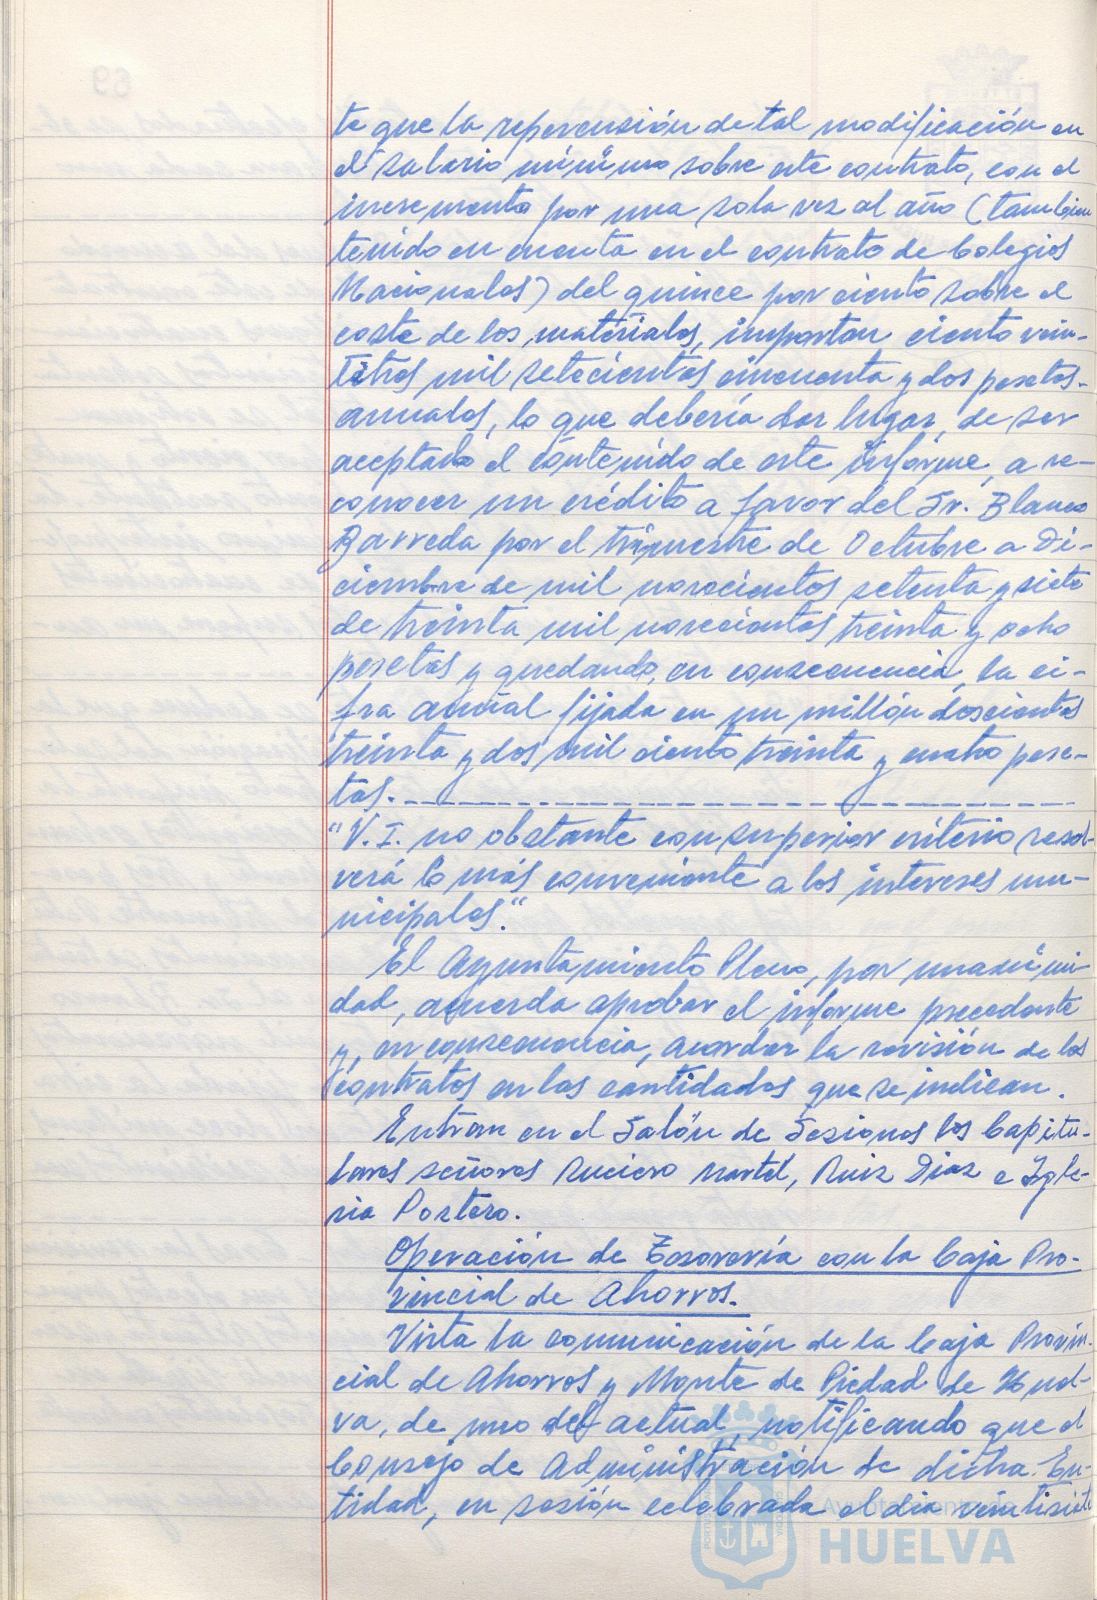 te que la repercusión de tal modificación en
el salario mínimo sobre este contrato, con el
incremento por una sola vez al año (también
tenido en cuenta en el contrato de Colegios
Nacionales) del quince por ciento sobre el
coste de los materiales, importan ciento vein-
titres mil setecientas cincuenta y dos pesetas.
anuales, lo que debería dar lugar, de ser
aceptado el contenido de este informe, a re-
conocer un crédito a favor del Sr. Blanco
Barreda por el trimestre de Octubre a Di-
ciembre de mil novecientos setenta y siete
de treinta mil novecientas treinta y ocho
pesetas y quedando, en consecuencia, la ci-
fra anual fijada en un millón doscientas
treinta y dos mil ciento treinta y cuatro pese-
tas.
"V.I. no obstante con superior criterio resol-
verá lo más conveniente a los intereses mu-
nicipales."
El Ayuntamiento Pleno, por unanimi-
dad, acuerda aprobar el informe precedente
y, en consecuencia, acordar la revisión de los
contratos en las cantidades que se indican.
Entran en el Salón de Sesiones los Capitu-
lares señores Suciero Martel, Ruiz Diaz e Igle-
sia Portero.
Operación de Tesorería con la Caja Pro-
vincial de Ahorros.
Vista la comunicación de la Caja Provin-
cial de Ahorros y Monte de Piedad de Huel-
va, de uno del actual, notificando que el
Consejo de Administración de dicha En-
tidad, en sesión celebrada el dia veintisiete
Ayuntamiento de
HUELVA